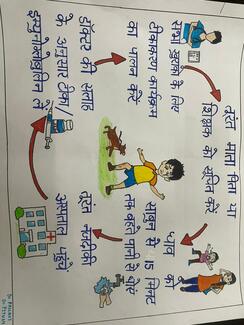 तुरंत माता पिता या
शिक्षक को सूचित करें
घाव को
साबुन से 15 मिनट
तक बहते पानी से धोएं
तुरंत नजदीकी
अस्पताल पहुंचें
डॉक्टर की सलाह
के अनुसार टीका /
इम्युनोग्लोबुलिन लें
सभी के लिए
टीकाकरण कार्यक्रम
का पालन करें